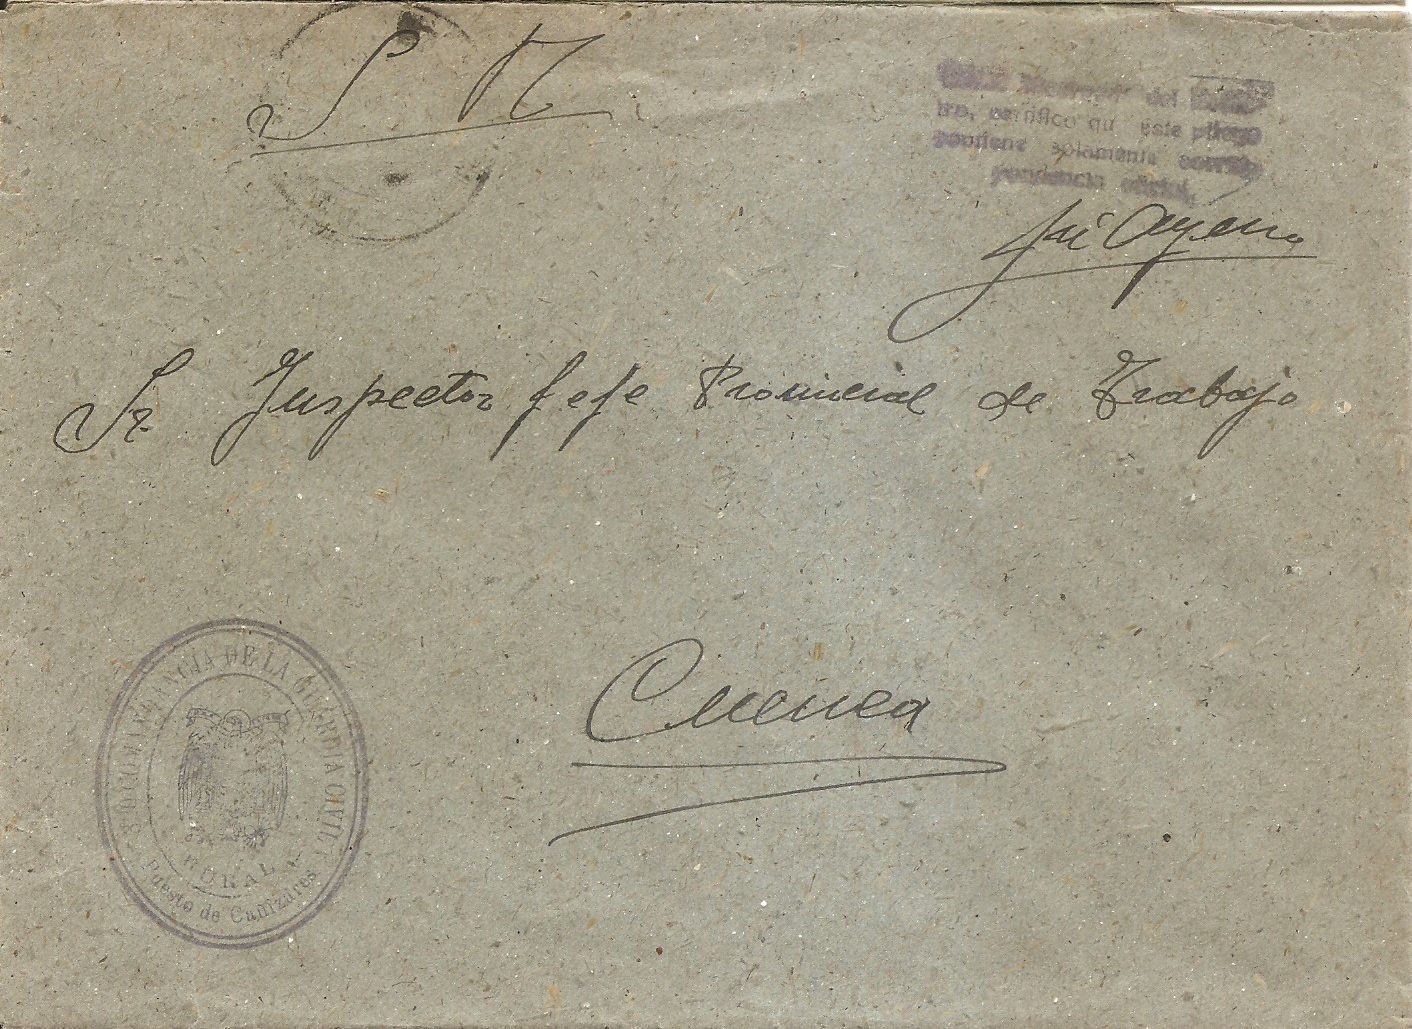 S N
del
tro, certifico qu este pliego
contiene solamente corres-
pondencia oficial.
Sr. Inspector Jefe Provincial de Trabajo
Cuenca
COMANDANCIA DE LA GUARDIA CIVIL
RURAL
Puesto de Cañizares